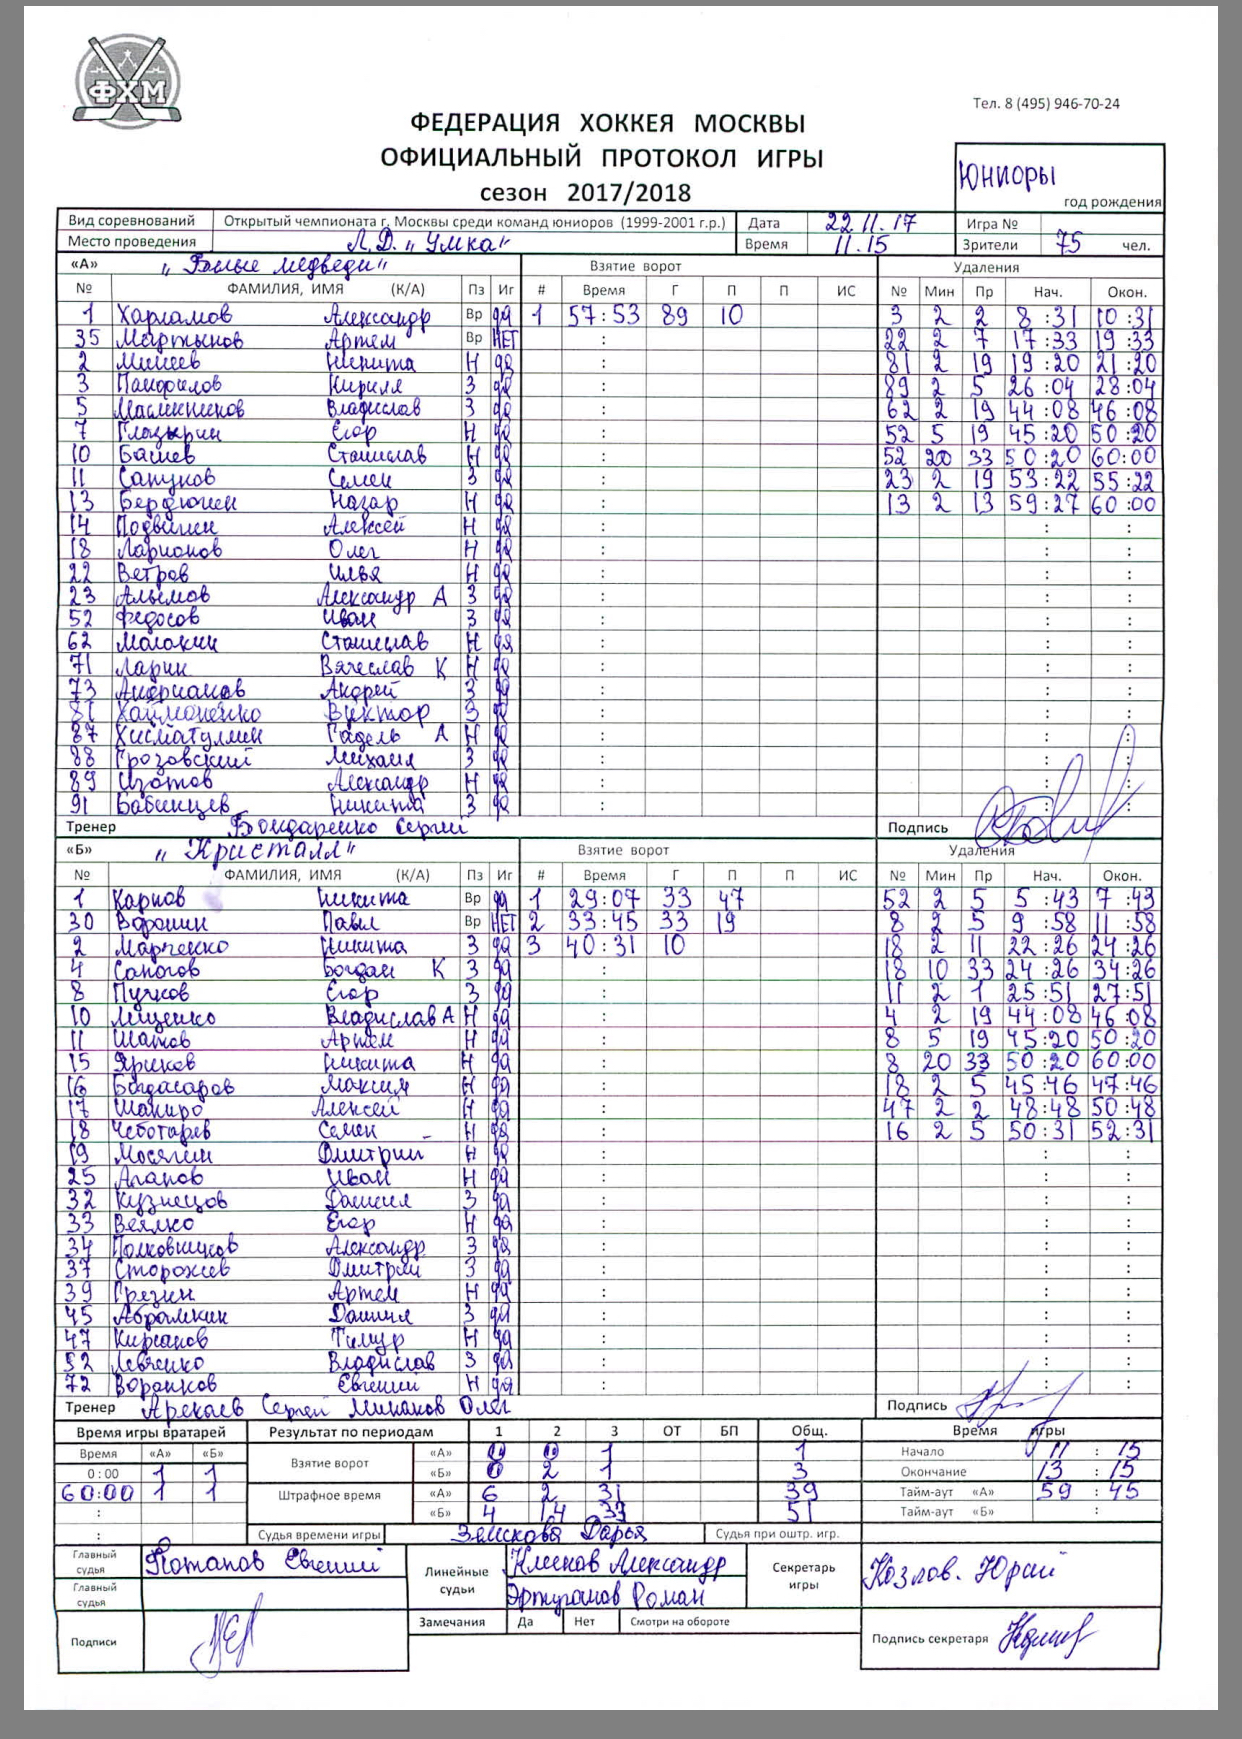 ФХМ
Тел. 8 (495) 946-70-24
ФЕДЕРАЦИЯ ХОККЕЯ МОСКВЫ
ОФИЦИАЛЬНЫЙ ПРОТОКОЛ ИГРЫ
сезон 2017/2018
Юниоры
год рождения
Вид соревнований Открытый чемпионата г. Москвы среди команд юниоров (1999-2001 г.р.) Дата 22.11.17 Игра №
Место проведения Л.Д. „Умка" Время 11.15 Зрители 75 чел.
«А» „Белые медведи" Взятие ворот Удаления
№ ФАМИЛИЯ, ИМЯ (К/А) Пз Иг # Время Г П П ИС № Мин Пр Нач. Окон.
1 Харламов Александр Вр да 1 57:53 89 10 3 2 2 8:31 10:31
35 Мартынов Артем Вр НЕТ : 22 2 7 17:33 19:33
2 Никита Н да : 81 2 19 19:20 21:20
3 Панфилов Кирилл З да : 89 2 5 26:04 28:04
5 Масленников Владислав З да : 62 2 19 44:08 46:08
7 Глазырин Егор Н да : 52 5 19 45:20 50:20
10 Башев Станислав Н да : 52 20 33 50:20 60:00
11 Сапунов Семен З да : 23 2 19 53:22 55:22
13 Бердюгин Назар Н да : 13 2 13 59:27 60:00
14 Подвигин Алексей Н да : : :
18 Ларионов Олег Н да : : :
22 Ветров Илья Н да : : :
23 Алымов Александр А З да : : :
52 Федосов Иван З да : : :
62 Молокин Станислав Н да : : :
71 Ларин Вячеслав К Н да : : :
73 Андрианов Андрей З да : : :
81 Хаймоненко Виктор З да : : :
87 Хисматуллин Гадель А Н да : : :
88 Грозовский Михаил З да : : :
89 Изотов Александр Н да : : :
91 Бабинцев Никита З да : : :
Тренер Бондаренко Сергей Подпись
«Б» „Кристалл" Взятие ворот Удаления
№ ФАМИЛИЯ, ИМЯ (К/А) Пз Иг # Время Г П П ИС № Мин Пр Нач. Окон.
1 Карпов Никита Вр да 1 29:07 33 47 52 2 5 5:43 7:43
30 Воронин Павел Вр НЕТ 2 33:45 33 19 8 2 5 9:58 11:58
2 Марченко Никита З да 3 40:31 10 18 2 11 22:26 24:26
4 Сапогов Богдан К З да : 18 10 33 24:26 34:26
8 Пучков Егор З да : 11 2 1 25:51 27:51
10 Лищенко Владислав А Н да : 4 2 19 44:08 46:08
11 Шатов Артем Н да : 8 5 19 45:20 50:20
15 Яриков Никита Н да : 8 20 33 50:20 60:00
16 Багдасаров Максим Н да : 18 2 5 45:46 47:46
17 Шапиро Алексей Н да : 47 2 2 48:48 50:48
18 Чеботарев Семен Н да : 16 2 5 50:31 52:31
19 Мосягин Дмитрий Н да : : :
25 Агапов Иван Н да : : :
32 Кузнецов Даниил З да : : :
33 Веялко Егор Н да : : :
34 Полковников Александр З да : : :
37 Сторожев Дмитрий З да : : :
39 Грезин Артем Н да : : :
45 Абрамкин Даниил З да : : :
47 Кирсанов Тимур Н да : : :
52 Левченко Владислав З да : : :
72 Воронков Евгений Н да : : :
Тренер Арекаев Сергей Минаков Олег Подпись
Время игры вратарей Результат по периодам 1 2 3 ОТ БП Общ. Время игры
Время «А» «Б» Взятие ворот «А» 0 0 1 1 Начало 11 : 15
0:00 1 1 «Б» 0 2 1 3 Окончание 13 : 15
60:00 1 1 Штрафное время «А» 6 2 31 39 Тайм-аут «А» 59 : 45
: «Б» 4 14 33 51 Тайм-аут «Б» :
: Судья времени игры Земскова Дарья Судья при оштр. игр.
Главный судья Потапов Евгений Линейные судьи Клеенов Александр Секретарь игры Козлов Юрий
Главный судья Эртуганов Роман
Подписи Замечания Да Нет Смотри на обороте Подпись секретаря